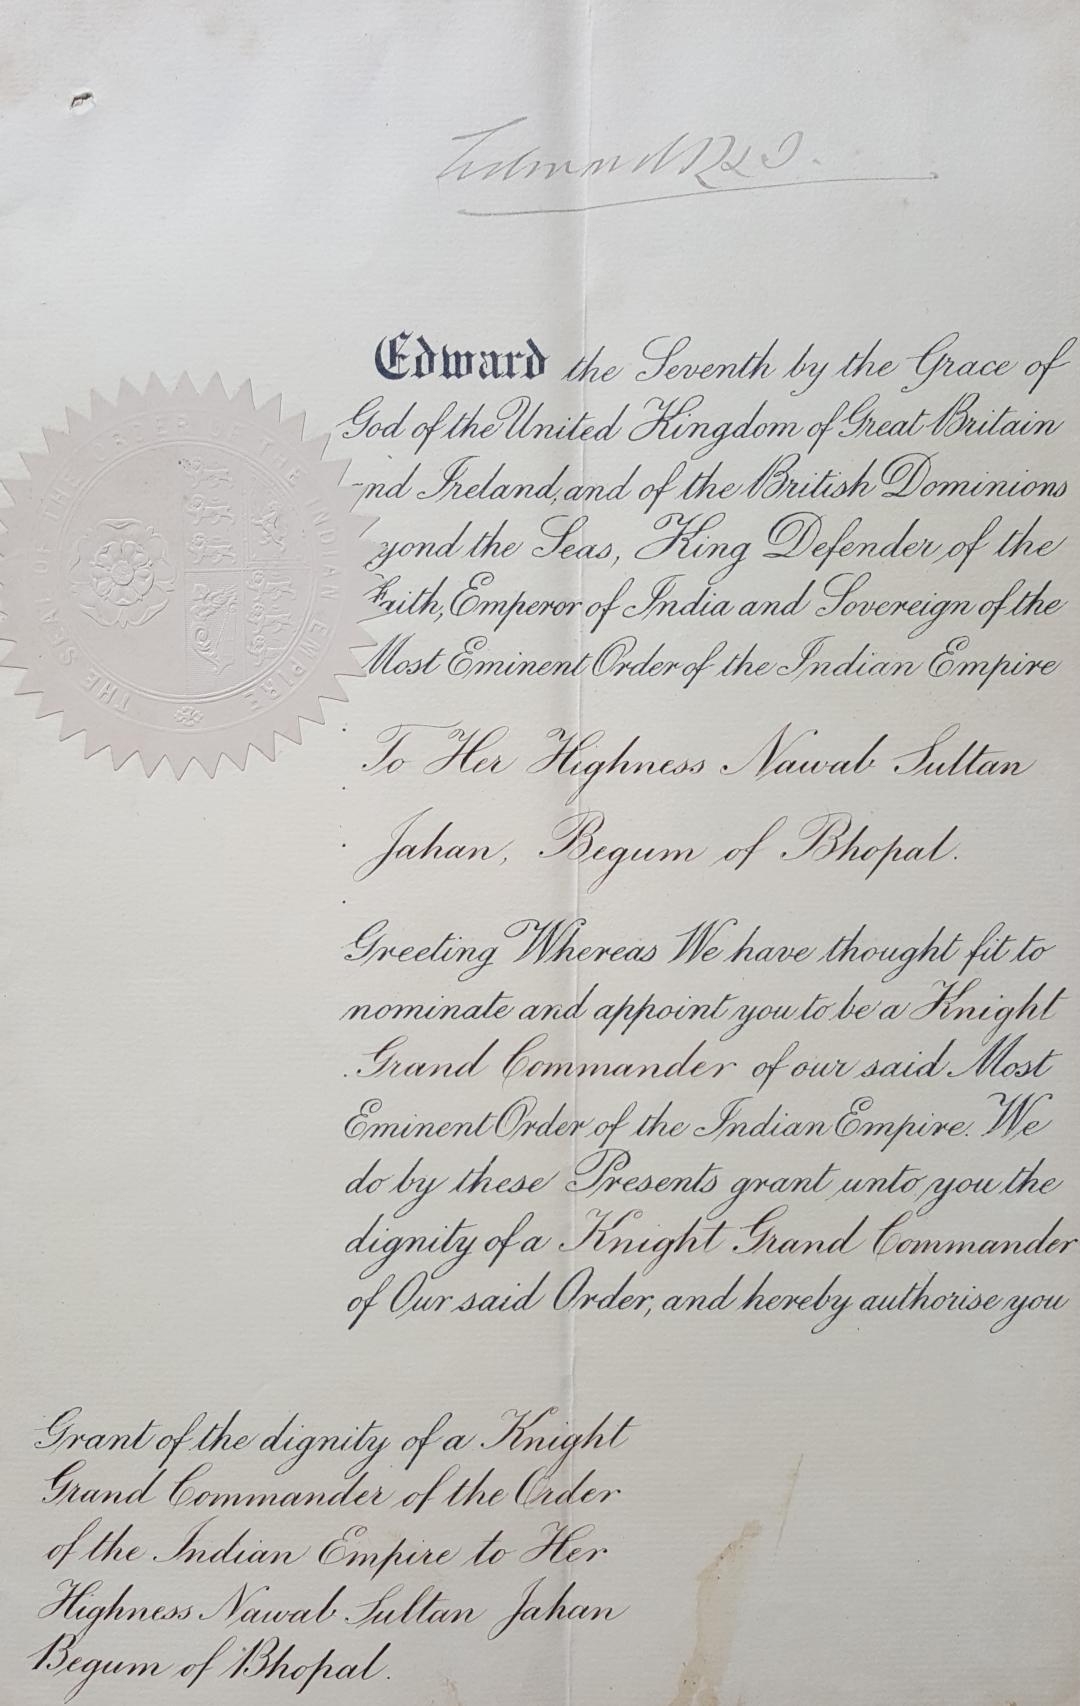 Edward R & I.
Edward the Seventh by the Grace of
God of the United Kingdom of Great Britain
nd Ireland, and of the British Dominions
yond the Seas, King Defender of the
Faith, Emperor of India and Sovereign of the
Most Eminent Order of the Indian Empire
To Her Highness Nawab Sultan
Jahan, Begum of Bhopal.
Greeting Whereas We have thought fit to
nominate and appoint you to be a Knight
Grand Commander of our said Most
Eminent Order of the Indian Empire. We
do by these Presents grant unto you the
dignity of a Knight Grand Commander
of Our said Order, and hereby authorise you
Grant of the dignity of a Knight
Grand Commander of the Order
of the Indian Empire to Her
Highness Nawab Sultan Jahan
Begum of Bhopal.
THE SEAL OF THE INDIAN EMPIRE